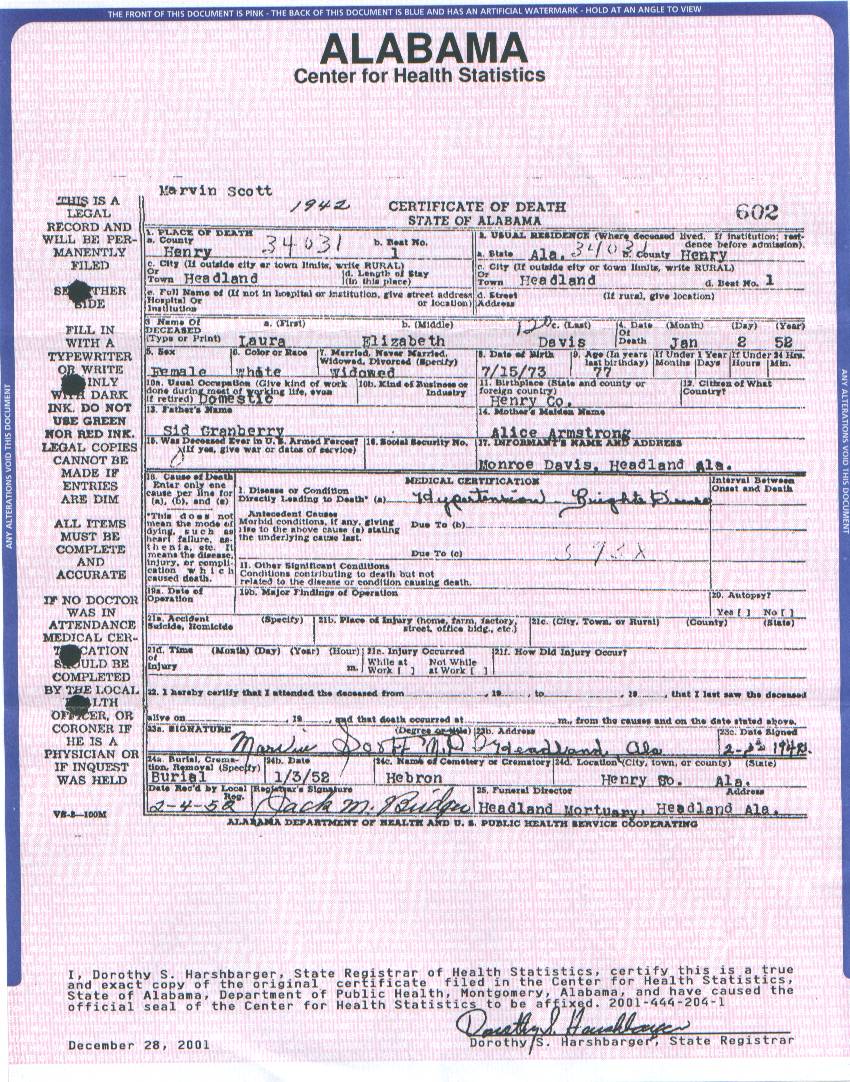 THE FRONT OF THIS DOCUMENT IS PINK - THE BACK OF THIS DOCUMENT IS BLUE AND HAS AN ARTIFICIAL WATERMARK - HOLD AT AN ANGLE TO VIEW
ALABAMA
Center for Health Statistics
Marvin Scott
1942
CERTIFICATE OF DEATH
STATE OF ALABAMA
602
THIS IS A
LEGAL
RECORD AND
WILL BE PER-
MANENTLY
FILED
SE THER
SIDE
FILL IN
WITH A
TYPEWRITER
OR WRITE
INLY
WITH DARK
INK. DO NOT
USE GREEN
NOR RED INK.
LEGAL COPIES
CANNOT BE
MADE IF
ENTRIES
ARE DIM
ALL ITEMS
MUST BE
COMPLETE
AND
ACCURATE
IF NO DOCTOR
WAS IN
ATTENDANCE
MEDICAL CER-
CATION
SHOULD BE
COMPLETED
BY THE LOCAL
LTH
OFFICER, OR
CORONER IF
HE IS A
PHYSICIAN OR
IF INQUEST
WAS HELD
VS-8-100M
1. PLACE OF DEATH
a. County
Henry
34031
b. Beat No.
1
2. USUAL RESIDENCE (Where deceased lived. If institution; residence before admission).
a. State Ala. b. County Henry
c. City (If outside city or town limits, write RURAL)
Or
Town Headland
d. Length of Stay
(In this place)
c. City (If outside city or town limits, write RURAL)
Or
Town Headland
d. Beat No. 1
e. Full Name of (If not in hospital or institution, give street address or location)
Hospital Or
Institution
d. Street
Address
(If rural, give location)
3 Name Of
DECEASED
(Type or Print)
a. (First) b. (Middle) c. (Last)
Laura Elizabeth Davis
4. Date (Month) (Day) (Year)
Of
Death Jan 2 52
5. Sex
Female
6. Color or Race
White
7. Married, Never Married,
Widowed, Divorced (Specify)
Widowed
8. Date of Birth
7/15/73
9. Age (In years
last birthday)
77
If Under 1 Year
Months Days
If Under 24 Hrs.
Hours Min.
10a. Usual Occupation (Give kind of work
done during most of working life, even
if retired) Domestic
10b. Kind of Business or
Industry
11. Birthplace (State and county or
foreign country)
Henry Co.
12. Citizen of What
Country?
13. Father's Name
Sid Granberry
14. Mother's Maiden Name
Alice Armstrong
15. Was Deceased Ever in U. S. Armed Forces?
(If yes, give war or dates of service)
16. Social Security No.
17. INFORMANT'S NAME AND ADDRESS
Monroe Davis, Headland Ala.
18. Cause of Death
Enter only one
cause per line for
(a), (b), and (c)
*This does not
mean the mode of
dying, such as
heart failure, as-
thenia, etc. It
means the disease,
injury, or compli-
cation which
caused death.
MEDICAL CERTIFICATION
I. Disease or Condition
Directly Leading to Death* (a) Hypertension Brights
Antecedent Causes
Morbid conditions, if any, giving
rise to the above cause (a) stating
the underlying cause last.
Due To (b)
Due To (c)
II. Other Significant Conditions
Conditions contributing to death but not
related to the disease or condition causing death.
Interval Between
Onset and Death
19a. Date of
Operation
19b. Major Findings of Operation
20. Autopsy?
Yes [ ] No [ ]
21a. Accident
Suicide, Homicide
(Specify)
21b. Place of Injury (home, farm, factory,
street, office bldg., etc.)
21c. (City, Town, or Rural) (County) (State)
21d. Time (Month) (Day) (Year) (Hour)
of
Injury m.
21e. Injury Occurred
While at Not While
Work [ ] at Work [ ]
21f. How Did Injury Occur?
22. I hereby certify that I attended the deceased from , 19 , to , 19 , that I last saw the deceased
alive on , 19 , and that death occurred at m., from the causes and on the date stated above.
23a. SIGNATURE (Degree or title)
Marvin Scott M.D
23b. Address
Headland Ala
23c. Date Signed
24a. Burial, Crema-
tion, Removal (Specify)
Burial
24b. Date
1/3/52
24c. Name of Cemetery or Crematory
Hebron
24d. Location (City, town, or county) (State)
Henry Co. Ala.
Date Rec'd by Local
Reg.
2-4-52
Registrar's Signature
Jack M.
25. Funeral Director Address
Headland Mortuary, Headland Ala.
ALABAMA DEPARTMENT OF HEALTH AND U. S. PUBLIC HEALTH SERVICE COOPERATING
ANY ALTERATIONS VOID THIS DOCUMENT
ANY ALTERATIONS VOID THIS DOCUMENT
I, Dorothy S. Harshbarger, State Registrar of Health Statistics, certify this is a true
and exact copy of the original certificate filed in the Center for Health Statistics,
State of Alabama, Department of Public Health, Montgomery, Alabama, and have caused the
official seal of the Center for Health Statistics to be affixed. 2001-444-204-1
Dorothy S. Harshbarger
December 28, 2001
Dorothy S. Harshbarger, State Registrar